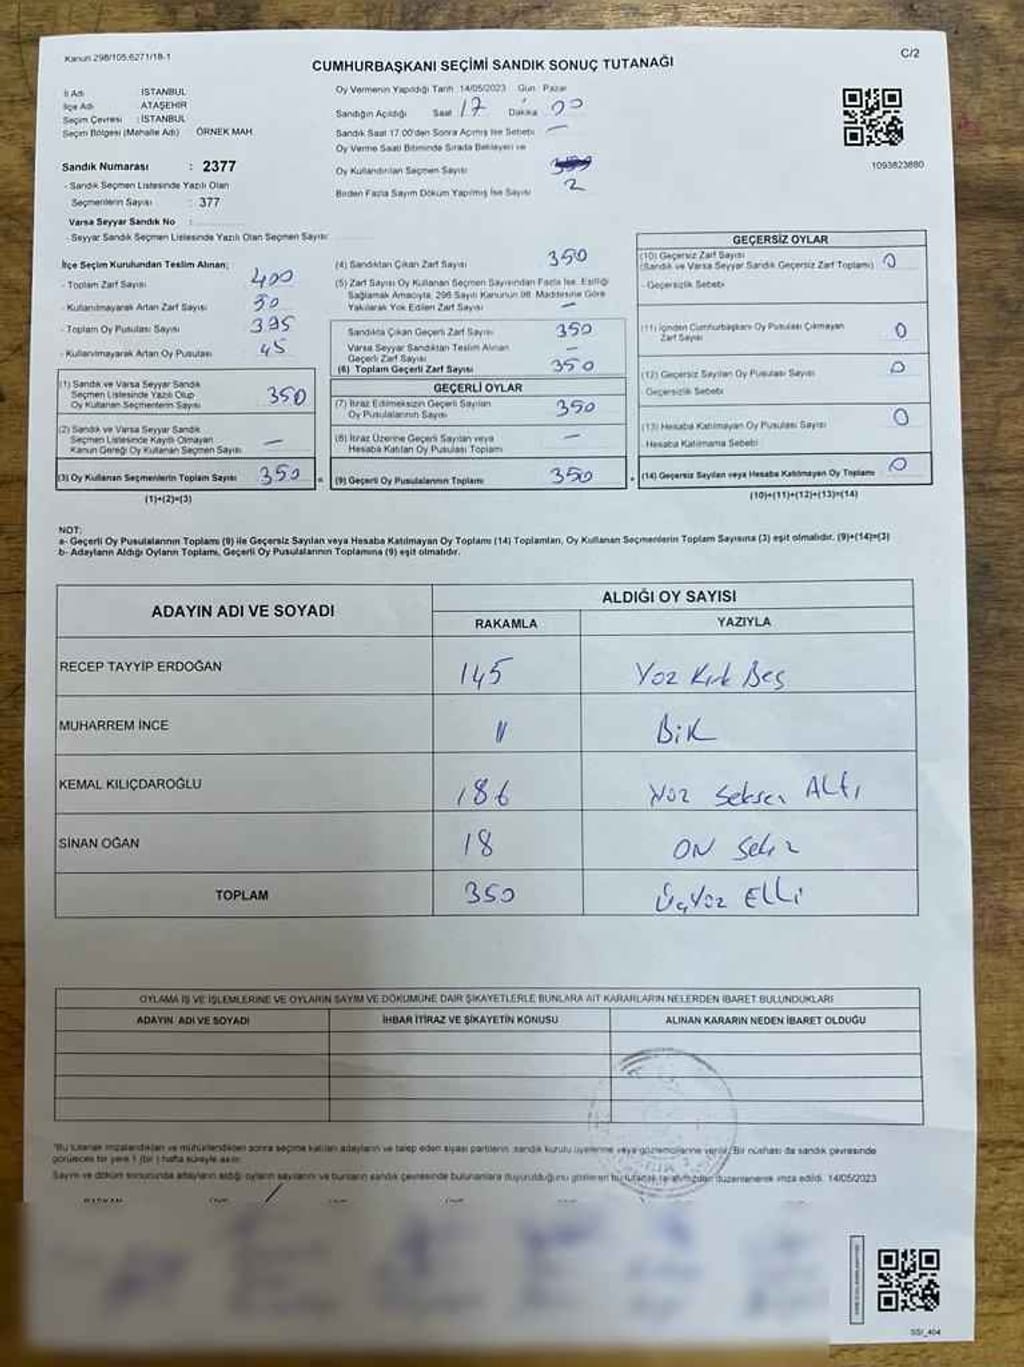 Kanun 298/105,6271/18-1
C/2
CUMHURBAŞKANI SEÇİMİ SANDIK SONUÇ TUTANAĞI
İl Adı : İSTANBUL
İlçe Adı : ATAŞEHİR
Seçim Çevresi : İSTANBUL
Seçim Bölgesi (Mahalle Adı) ÖRNEK MAH.
Sandık Numarası : 2377
- Sandık Seçmen Listesinde Yazılı Olan
Seçmenlerin Sayısı : 377
Varsa Seyyar Sandık No :
- Seyyar Sandık Seçmen Listesinde Yazılı Olan Seçmen Sayısı:
Oy Vermenin Yapıldığı Tarih :14/05/2023 Gün : Pazar
Sandığın Açıldığı Saat : 17 Dakika : 00
Sandık Saat 17.00'den Sonra Açılmış İse Sebebi —
Oy Verme Saati Bitiminde Sırada Bekleyen ve
Oy Kullandırılan Seçmen Sayısı
2
Birden Fazla Sayım Döküm Yapılmış İse Sayısı
1093823880
İlçe Seçim Kurulundan Teslim Alınan;
- Toplam Zarf Sayısı 400
- Kullanılmayarak Artan Zarf Sayısı 50
- Toplam Oy Pusulası Sayısı 395
- Kullanılmayarak Artan Oy Pusulası 45
(1) Sandık ve Varsa Seyyar Sandık
Seçmen Listesinde Yazılı Olup
Oy Kullanan Seçmenlerin Sayısı 350
(2) Sandık ve Varsa Seyyar Sandık
Seçmen Listesinde Kayıtlı Olmayan
Kanun Gereği Oy Kullanan Seçmen Sayısı —
(3) Oy Kullanan Seçmenlerin Toplam Sayısı 350
(1)+(2)=(3)
(4) Sandıktan Çıkan Zarf Sayısı 350
(5) Zarf Sayısı Oy Kullanan Seçmen Sayısından Fazla İse, Eşitliği
Sağlamak Amacıyla, 298 Sayılı Kanunun 98. Maddesine Göre
Yakılarak Yok Edilen Zarf Sayısı —
Sandıkta Çıkan Geçerli Zarf Sayısı 350
Varsa Seyyar Sandıktan Teslim Alınan
Geçerli Zarf Sayısı —
(6) Toplam Geçerli Zarf Sayısı 350
GEÇERLİ OYLAR
(7) İtiraz Edilmeksizin Geçerli Sayılan
Oy Pusulalarının Sayısı 350
(8) İtiraz Üzerine Geçerli Sayılan veya
Hesaba Katılan Oy Pusulası Toplamı —
= (9) Geçerli Oy Pusulalarının Toplamı 350
GEÇERSİZ OYLAR
(10) Geçersiz Zarf Sayısı
(Sandık ve Varsa Seyyar Sandık Geçersiz Zarf Toplamı) 0
- Geçersizlik Sebebi
(11) İçinden Cumhurbaşkanı Oy Pusulası Çıkmayan
Zarf Sayısı 0
(12) Geçersiz Sayılan Oy Pusulası Sayısı 0
- Geçersizlik Sebebi
(13) Hesaba Katılmayan Oy Pusulası Sayısı 0
- Hesaba Katılmama Sebebi
+ (14) Geçersiz Sayılan veya Hesaba Katılmayan Oy Toplamı 0
(10)+(11)+(12)+(13)=(14)
NOT:
a- Geçerli Oy Pusulalarının Toplamı (9) ile Geçersiz Sayılan veya Hesaba Katılmayan Oy Toplamı (14) Toplamları, Oy Kullanan Seçmenlerin Toplam Sayısına (3) eşit olmalıdır. (9)+(14)=(3)
b- Adayların Aldığı Oyların Toplamı, Geçerli Oy Pusulalarının Toplamına (9) eşit olmalıdır.
ADAYIN ADI VE SOYADI
ALDIĞI OY SAYISI
RAKAMLA YAZIYLA
RECEP TAYYİP ERDOĞAN 145 Yüz Kırk Beş
MUHARREM İNCE 1 BİR
KEMAL KILIÇDAROĞLU 186 Yüz Seksen Altı
SİNAN OĞAN 18 ON Sekiz
TOPLAM 350 Üçyüz Elli
OYLAMA İŞ VE İŞLEMLERİNE VE OYLARIN SAYIM VE DÖKÜMÜNE DAİR ŞİKAYETLERLE BUNLARA AİT KARARLARIN NELERDEN İBARET BULUNDUKLARI
ADAYIN ADI VE SOYADI İHBAR İTİRAZ VE ŞİKAYETİN KONUSU ALINAN KARARIN NEDEN İBARET OLDUĞU
*Bu tutanak imzalandıktan ve mühürlendikten sonra seçime katılan adayların ve talep eden siyasi partilerin sandık kurulu üyelerine veya gözlemcilerine verilir. Bir nüshası da sandık çevresinde
görünecek bir yere 1 (bir) hafta süreyle asılır.
Sayım ve döküm sonucunda adayların aldığı oyların sayılarını ve bunların sandık çevresinde bulunanlara duyurulduğunu gösteren bu tutanak tarafımızdan düzenlenerek imza edildi. 14/05/2023
SSI_404